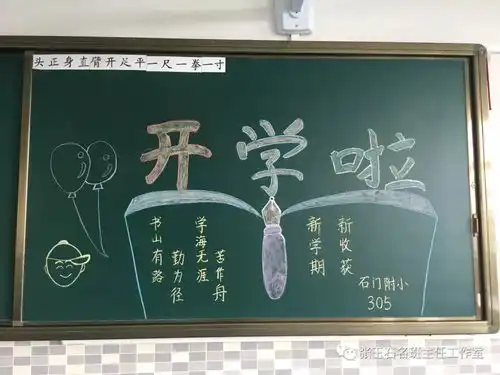 头正身直臂开足平一尺一拳一寸
开学啦
书山有路
勤为径
学海无涯
苦作舟
新学期
新收获
石门附小
305
张玉石名班主任工作室